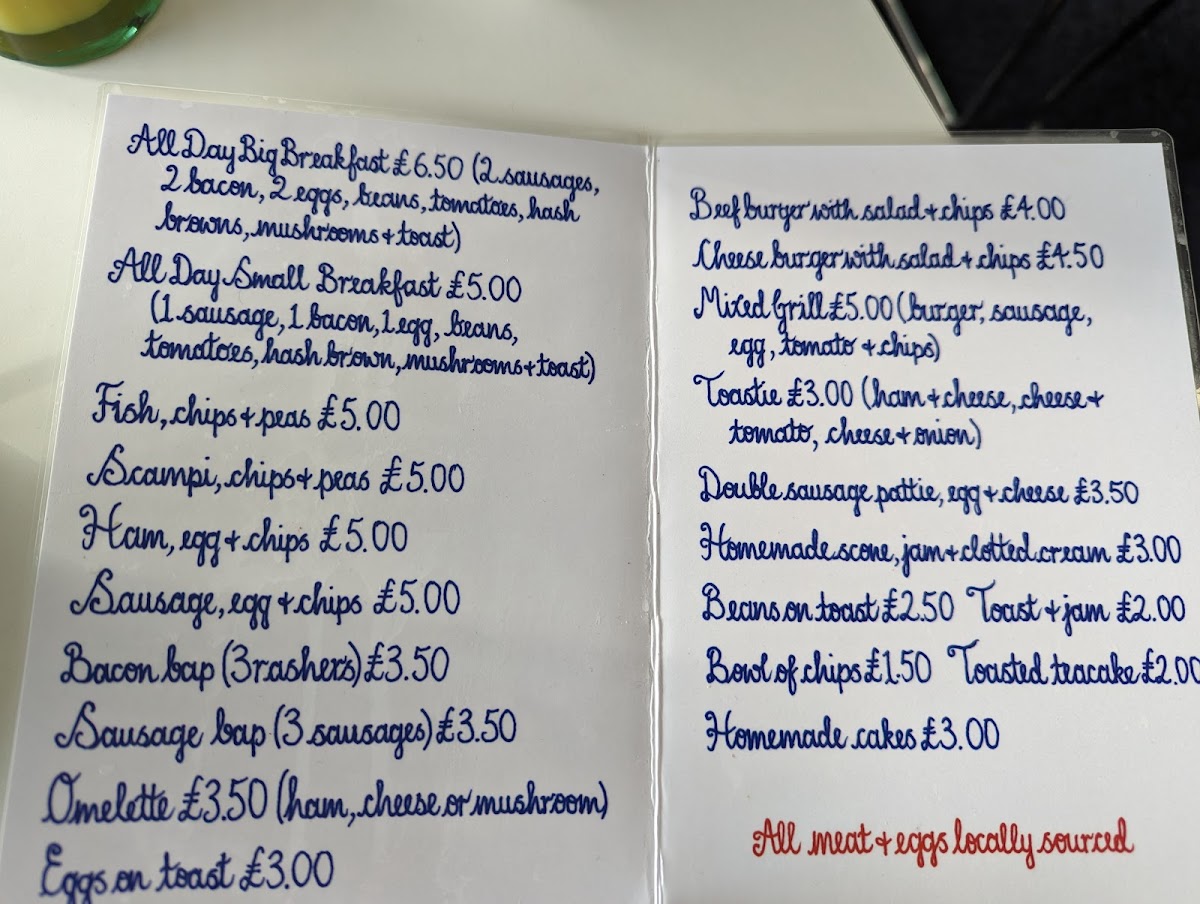 All Day Big Breakfast £6.50 (2 sausages,
2 bacon, 2 eggs, beans, tomatoes, hash
browns, mushrooms + toast)
All Day Small Breakfast £5.00
(1 sausage, 1 bacon, 1 egg, beans,
tomatoes, hash brown, mushrooms + toast)
Fish, chips + peas £5.00
Scampi, chips + peas £5.00
Ham, egg + chips £5.00
Sausage, egg + chips £5.00
Bacon bap (3 rashers) £3.50
Sausage bap (3 sausages) £3.50
Omelette £3.50 (ham, cheese or mushroom)
Eggs on toast £3.00
Beef burger with salad + chips £4.00
Cheese burger with salad + chips £4.50
Mixed Grill £5.00 (burger, sausage,
egg, tomato + chips)
Toastie £3.00 (ham + cheese, cheese +
tomato, cheese + onion)
Double sausage pattie, egg + cheese £3.50
Homemade scone, jam + clotted cream £3.00
Beans on toast £2.50 Toast + jam £2.00
Bowl of chips £1.50 Toasted teacake £2.00
Homemade cakes £3.00
All meat + eggs locally sourced